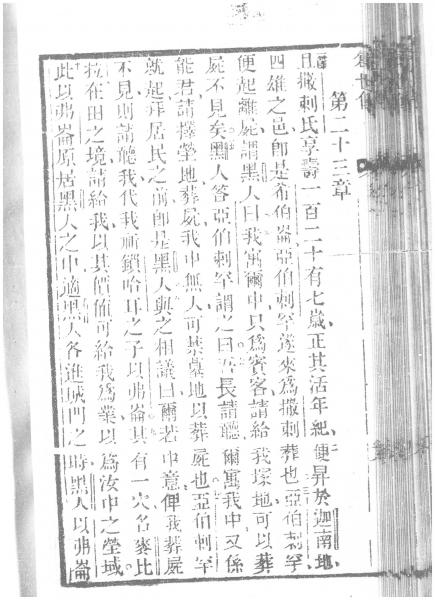 第二十三章
且撒剌氏享壽一百二十有七歲正其活年紀便昇於迦南地
四雄之邑卽是希伯崙亞伯剌罕遂來爲撒剌葬也亞伯剌罕
便起離屍謂黑人曰我寓爾中只爲賓客請給我塚地可以葬
屍不見矣黑人答亞伯剌罕謂之曰吾長請聽爾寓我中又係
能君請擇塋地葬屍我中無人可禁墓地以葬屍也亞伯剌罕
就起拜居民之前卽是黑人與之相議曰爾若中意俾我葬屍
不見則請聽我代我祈鎖哈耳之子以弗崙其有一穴名麥比
拉在田之境請給我以其價值可給我爲業以爲汝中之塋域
此以弗崙原居黑人之中適黑人各進城門之時黑人以弗崙